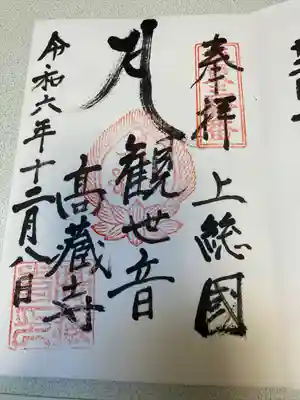 奉拝 上総國
観世音
高蔵寺
令和六年十二月八日